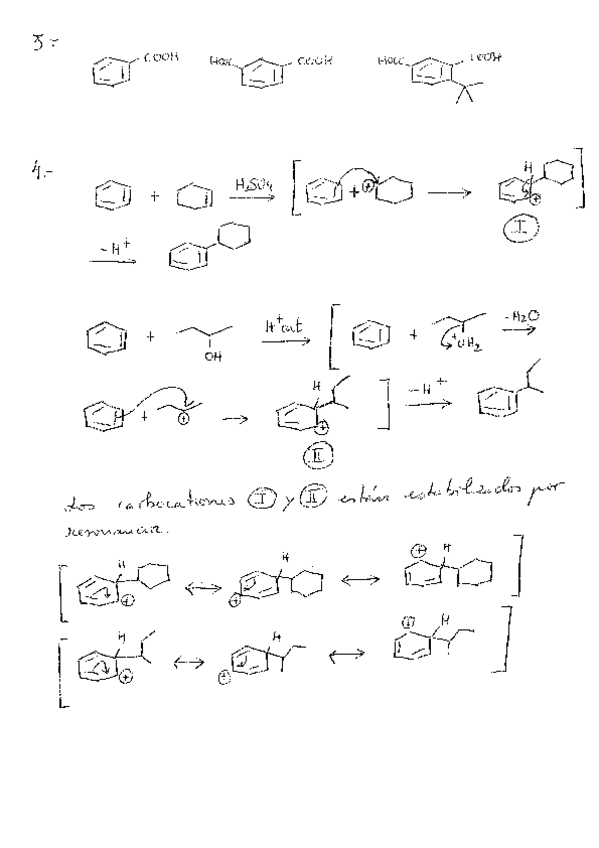 3.-
COOH HOOC COOH HOOC COOH
4.-
+ H₂SO₄ + ⊕ H ⊕
I
-H⁺
+ OH H⁺cat + ⁺OH₂ -H₂O
+ ⊕ H ⊕ -H⁺
II
Los carbocationes I y II están estabilizados por
resonancia.
H ⊕ H ⊕ ⊕ H
H ⊕ H ⊕ ⊕ H